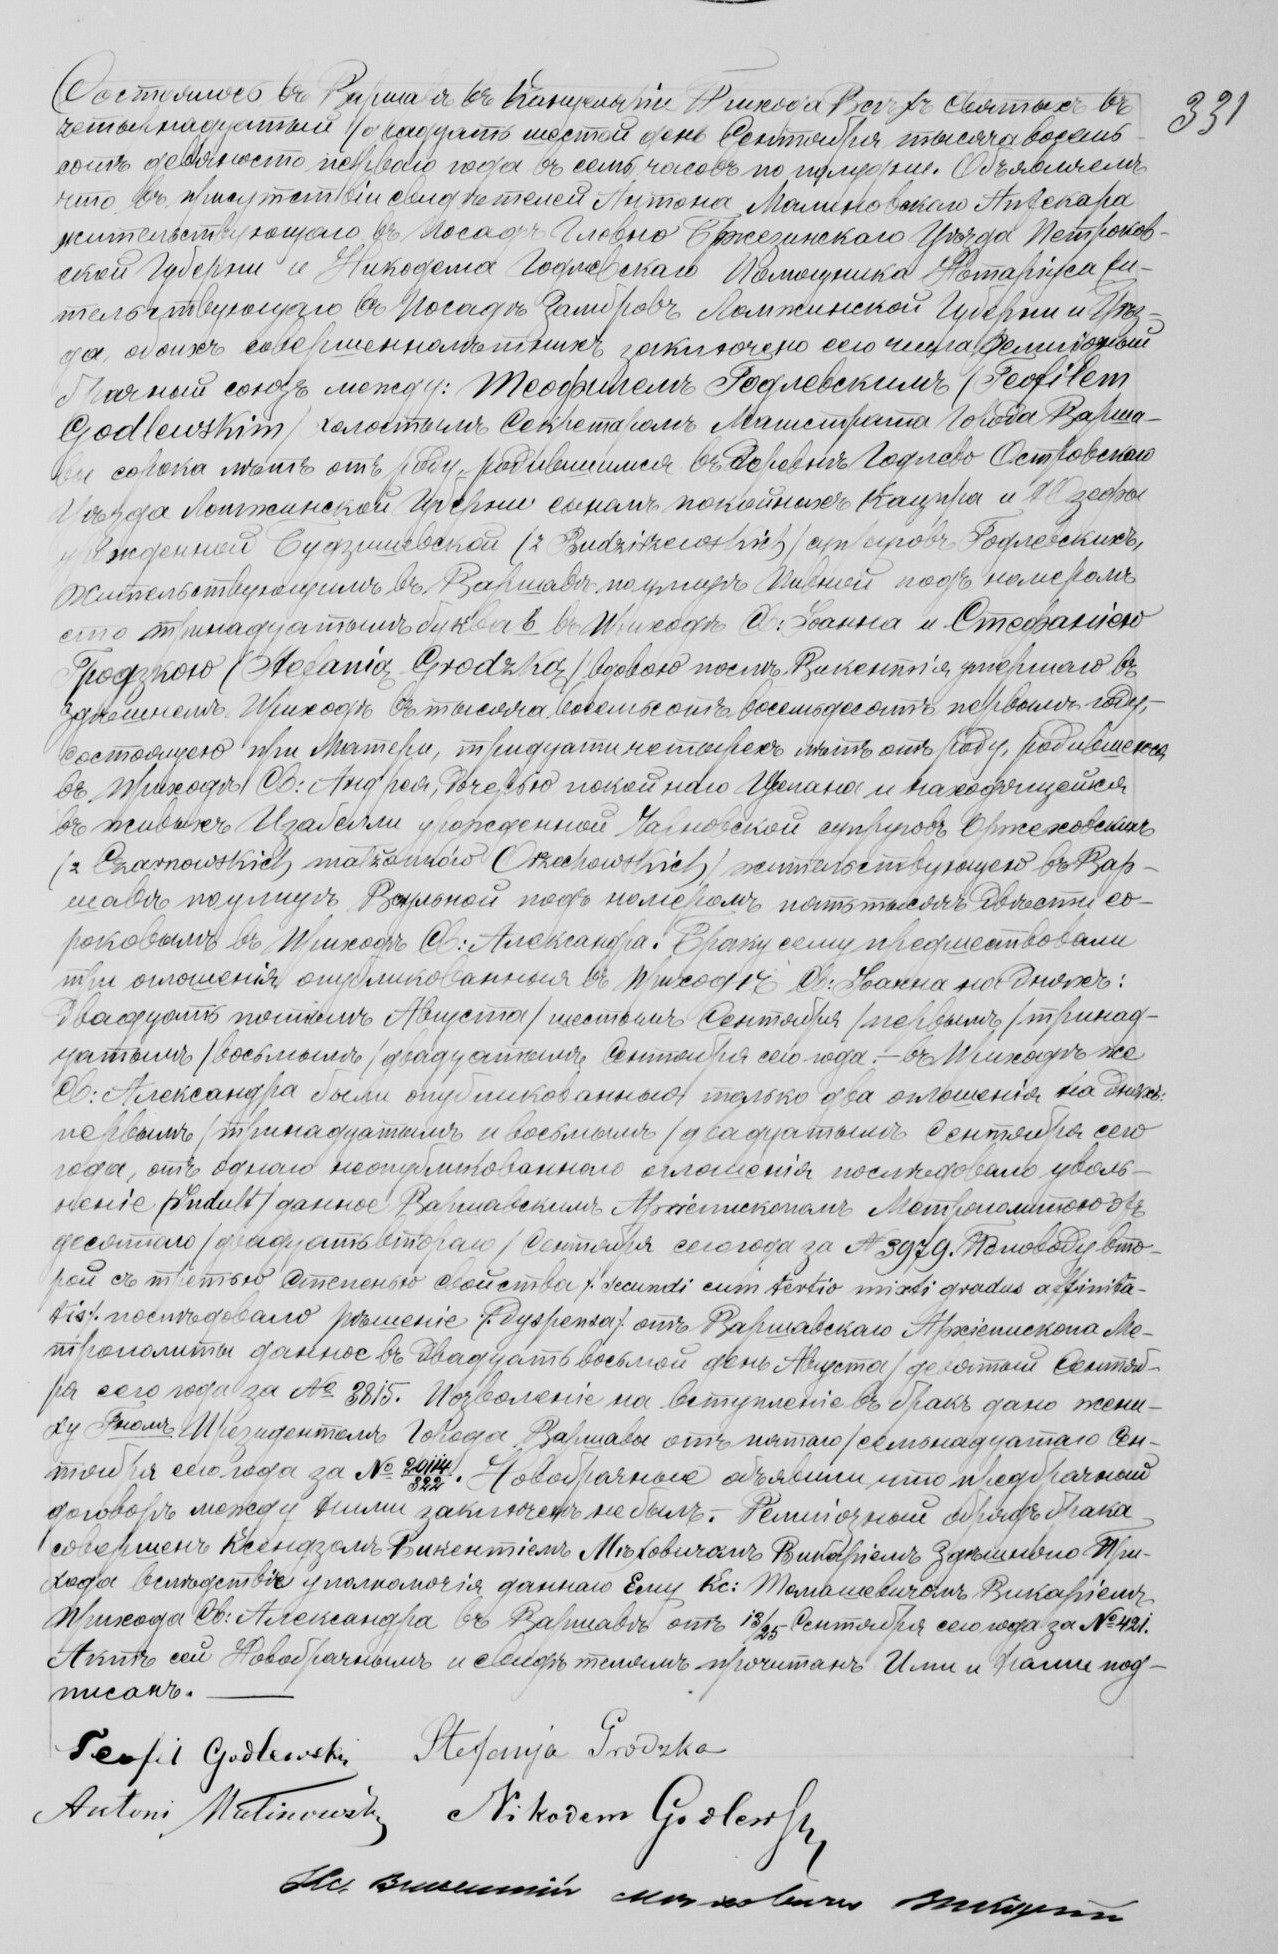 331
Состоялось въ Варшавѣ въ Канцеляріи Прихода Всѣхъ Святыхъ въ
четырнадцатый /двадцать шестой день Сентября тысяча восемь-
сотъ девяносто перваго года въ семь часовъ по полудни. Объявляемъ
что въ присутствіи свидѣтелей Антона Малиновскаго Аптекаря
жительствующаго въ Посадѣ Гловно Бржезинскаго Уѣзда Петроков-
ской Губерніи и Никодема Годлевскаго Помощника Нотаріуса жи-
тельствующаго въ Посадѣ Замбровъ Ломжинской Губерніи и Уѣз-
да, обоихъ совершеннолѣтнихъ заключено сего числа Религіозный
брачный союзъ между: Теофилемъ Годлевскимъ /Teofilem
Godlewskim/ холостымъ Секретаремъ Магистрата Города Варша-
вы сорока лѣтъ отъ роду, родившимся въ Деревнѣ Годлево Островскаго
Уѣзда Ломжинской Губерніи сыномъ покойныхъ Каспра и Юзефы
урожденной Будзишевской /z Budziszewskich/ супруговъ Годлевскихъ,
жительствующимъ въ Варшавѣ по улицѣ Пивной подъ номеромъ
сто тринадцатымъ буква в въ Приходѣ Св: Іоанна и Стефаніею
Гродзкою /Stefanią Grodzką/ вдовою послѣ Викентія умершаго въ
здѣшнемъ Приходѣ въ тысяча восемьсотъ восемьдесятъ первомъ году,-
состоящею при Матери, тридцати четырехъ лѣтъ отъ роду, родившеюся
въ Приходѣ Св: Андрея, дочерью покойнаго и находящейся
въ живыхъ Изабелли урожденной Чарновской супруговъ Оржеховскихъ
/z Czarnowskich małżonków Orzechowskich/ жительствующею въ Вар-
шавѣ по улицѣ подъ номеромъ пять тысячъ двѣсти со-
роковымъ въ Приходѣ Св: Александра. Браку сему предшествовали
три оглошенія опубликованныя въ Приходѣ Св: Іоанна на Дняхъ:
Двадцать пятымъ Августа/шестымъ Сентября/первымъ/тринад-
цатымъ/восьмымъ/двадцатымъ Сентября сего года.- въ Приходѣ же
Св: Александра были опубликованныя только два оглошенія на Дняхъ:
первымъ/тринадцатымъ и восьмымъ/двадцатымъ Сентября сего
года, отъ однаго неопубликованнаго оглошенія послѣдовало уволь-
неніе /Indult/ данное Варшавскимъ Архіепископомъ Метрополитою отъ
десятаго/двадцать втораго/Сентября сего года за № 3979. По поводу вто-
рой съ третью степенью свойства /: secundi cum tertio mixti gradus affinita-
tis/: послѣдовало рѣшеніе /:Dyspensa/: отъ Варшавскаго Архіепископа Ме-
трополиты данное въ Двадцать восьмой день Августа/девятый Сентяб-
ря сего года за № 3815. Позволеніе на вступленіе въ бракъ дано жени-
ху Гномъ Президентомъ Города Варшавы отъ пятаго/семьнадцатаго Сен-
тября сего года за № 20114/322. Новобрачные объявили что предбрачный
договоръ между ними заключенъ не былъ.- Религіозный обрядъ брака
совершенъ Ксендзомъ Викентіемъ Мѣховичомъ Викаріемъ Здѣшняго При-
хода вслѣдствіе уполномочія даннаго Ему Кс: Томашевичомъ Викаріемъ
Прихода Св: Александра въ Варшавѣ отъ 13/25 Сентября сего года за № 421.
Актъ сей Новобрачнымъ и свидѣтелямъ прочитанъ Ими и Нами под-
писанъ.
Teofil Godlewski Stefanja Grodzka
Antoni Malinowski Nikodem Godlewski
Кс. Викентій Мѣховичъ Викарій